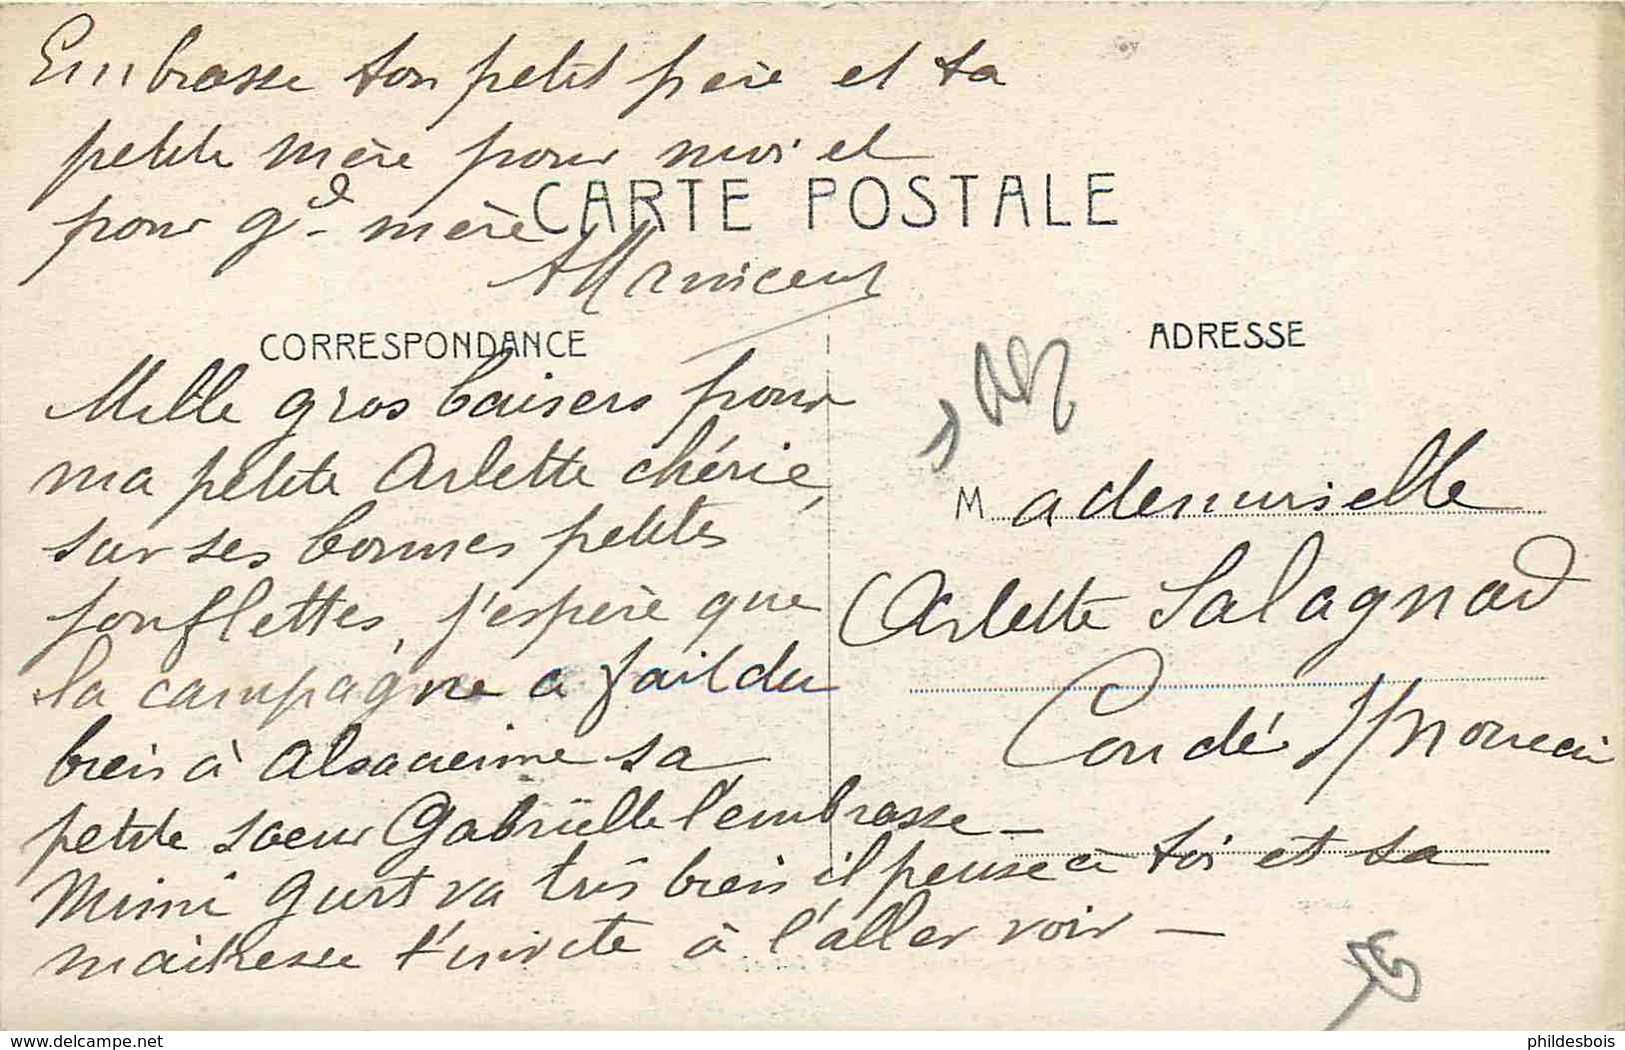 Embrasse ton petit père et ta
petite mère pour moi et
pour gd- mère
CARTE POSTALE
CORRESPONDANCE
Mille gros baisers pour
ma petite Arlette chérie,
sur ses bonnes petites
jouflettes, j'espère que
la campagne a fait du
bien à Alsacienne sa
petite soeur Gabriëlle l'embrasse —
Mimi va très bien il pense à toi et sa
maitresse t'invite à l'aller voir —
ADRESSE
Mademoiselle
Arlette Salagnad
Condé
phildesbois.delcampe.net
phildesbois